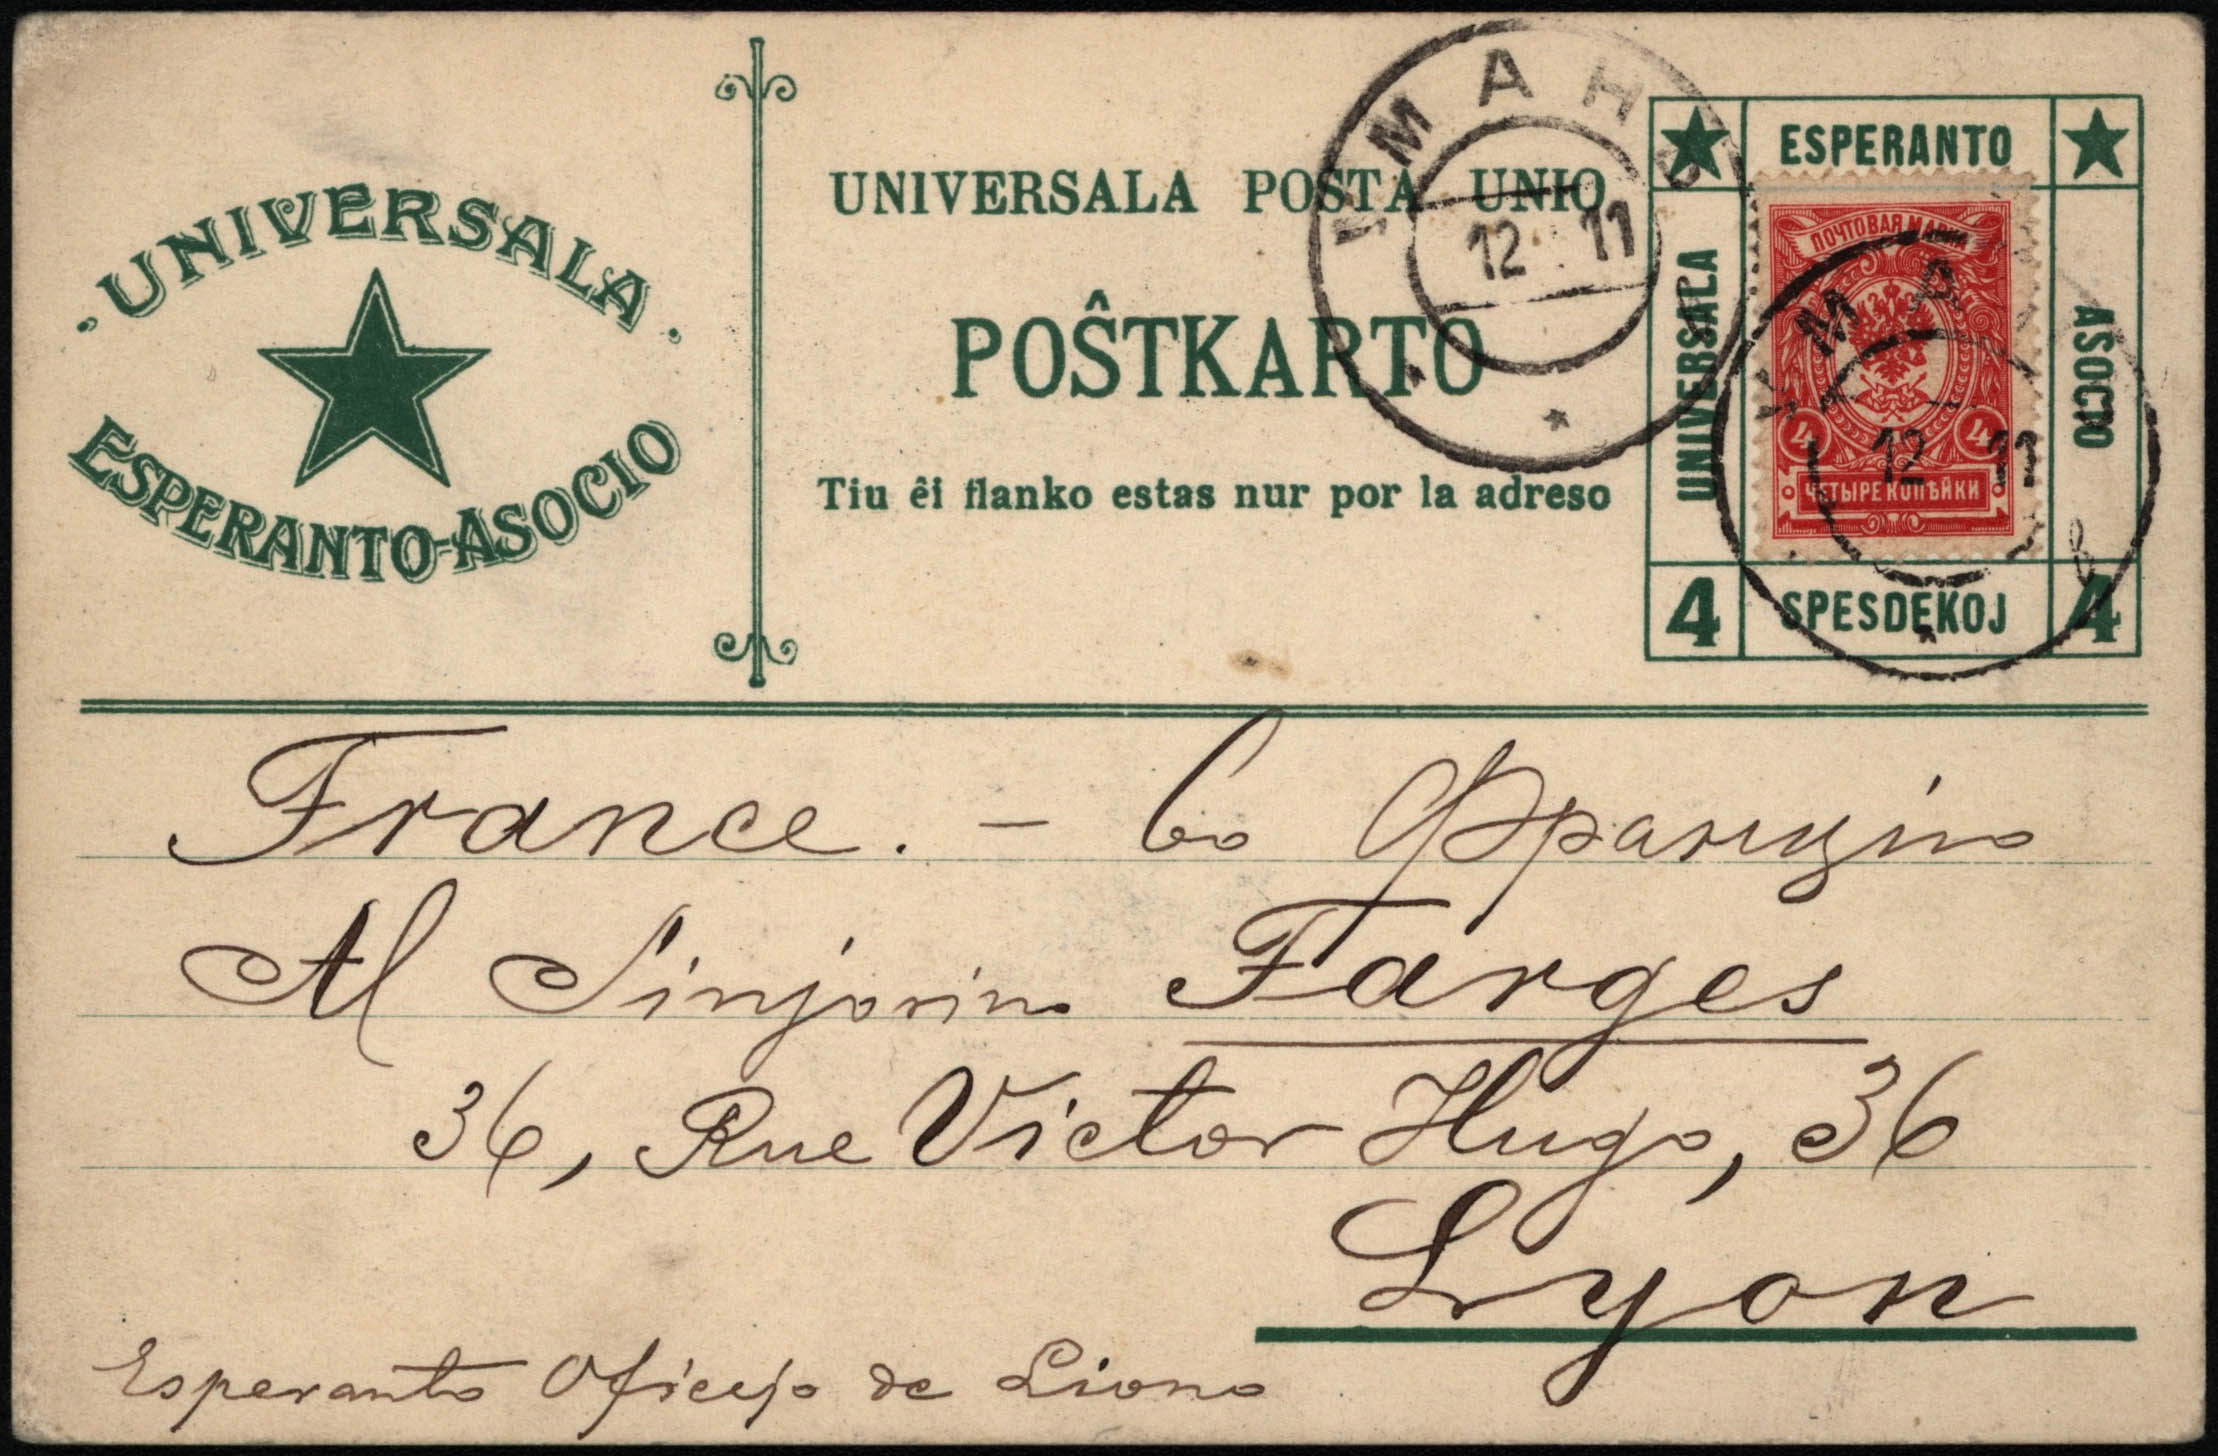 · UNIVERSALA ·
ESPERANTO-ASOCIO
UNIVERSALA POSTA UNIO
POŜTKARTO
Tiu ĉi flanko estas nur por la adreso
УМАНЬ
12 11
ESPERANTO
UNIVERSALA
ASOCIO
4 SPESDEKOJ 4
ПОЧТОВАЯ МАРКА
4 4
ЧЕТЫРЕ КОПѢЙКИ
УМА
12 11
France. – Во Францiю
Al Sinjorino Farges
36, Rue Victor Hugo, 36
Lyon
Esperanto Oficejo de Liono